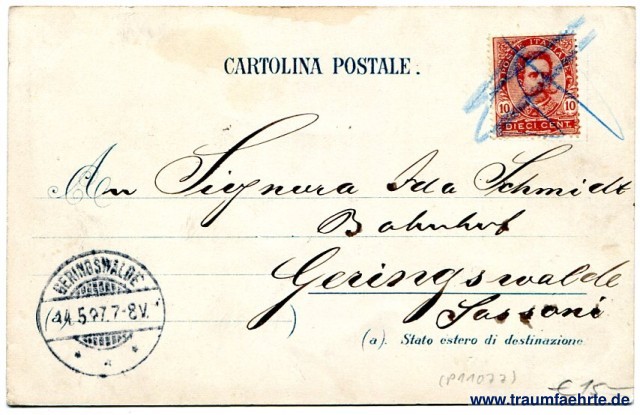 CARTOLINA POSTALE.
POSTE ITALIANE
10 10
DIECI CENT.
An Signora Ida Schmidt
Bahnhof
Geringswalde
Sassoni
GERINGSWALDE
14.5.97.7-8V.
)
(a). Stato estero di destinazione
(P11077)
€ 15-
www.traumfaehrte.de